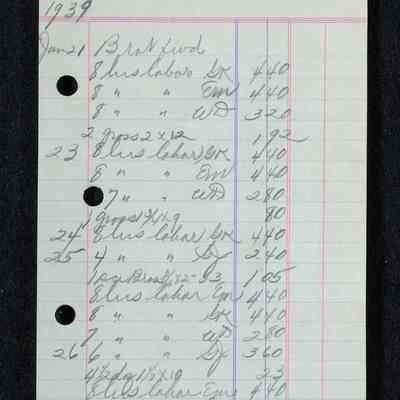 1939
Jan 21 Brot fwd
8 hrs labor GK 440
8 " " Em 440
8 " " WD 320
2 gross 2 x 12 192
23 8 hrs labor GK 440
8 " " Em 440
7 " " WD 280
1 gross 1 1/4 x 9 80
24 8 hrs labor GK 440
25 4 " " Sy 240
1 105
8 hrs labor Em 440
8 " " GK 440
7 " " WD 280
26 6 " " Sy 360
4 1/2 dz 1 1/4 x 9 23
8 hrs labor Em 440